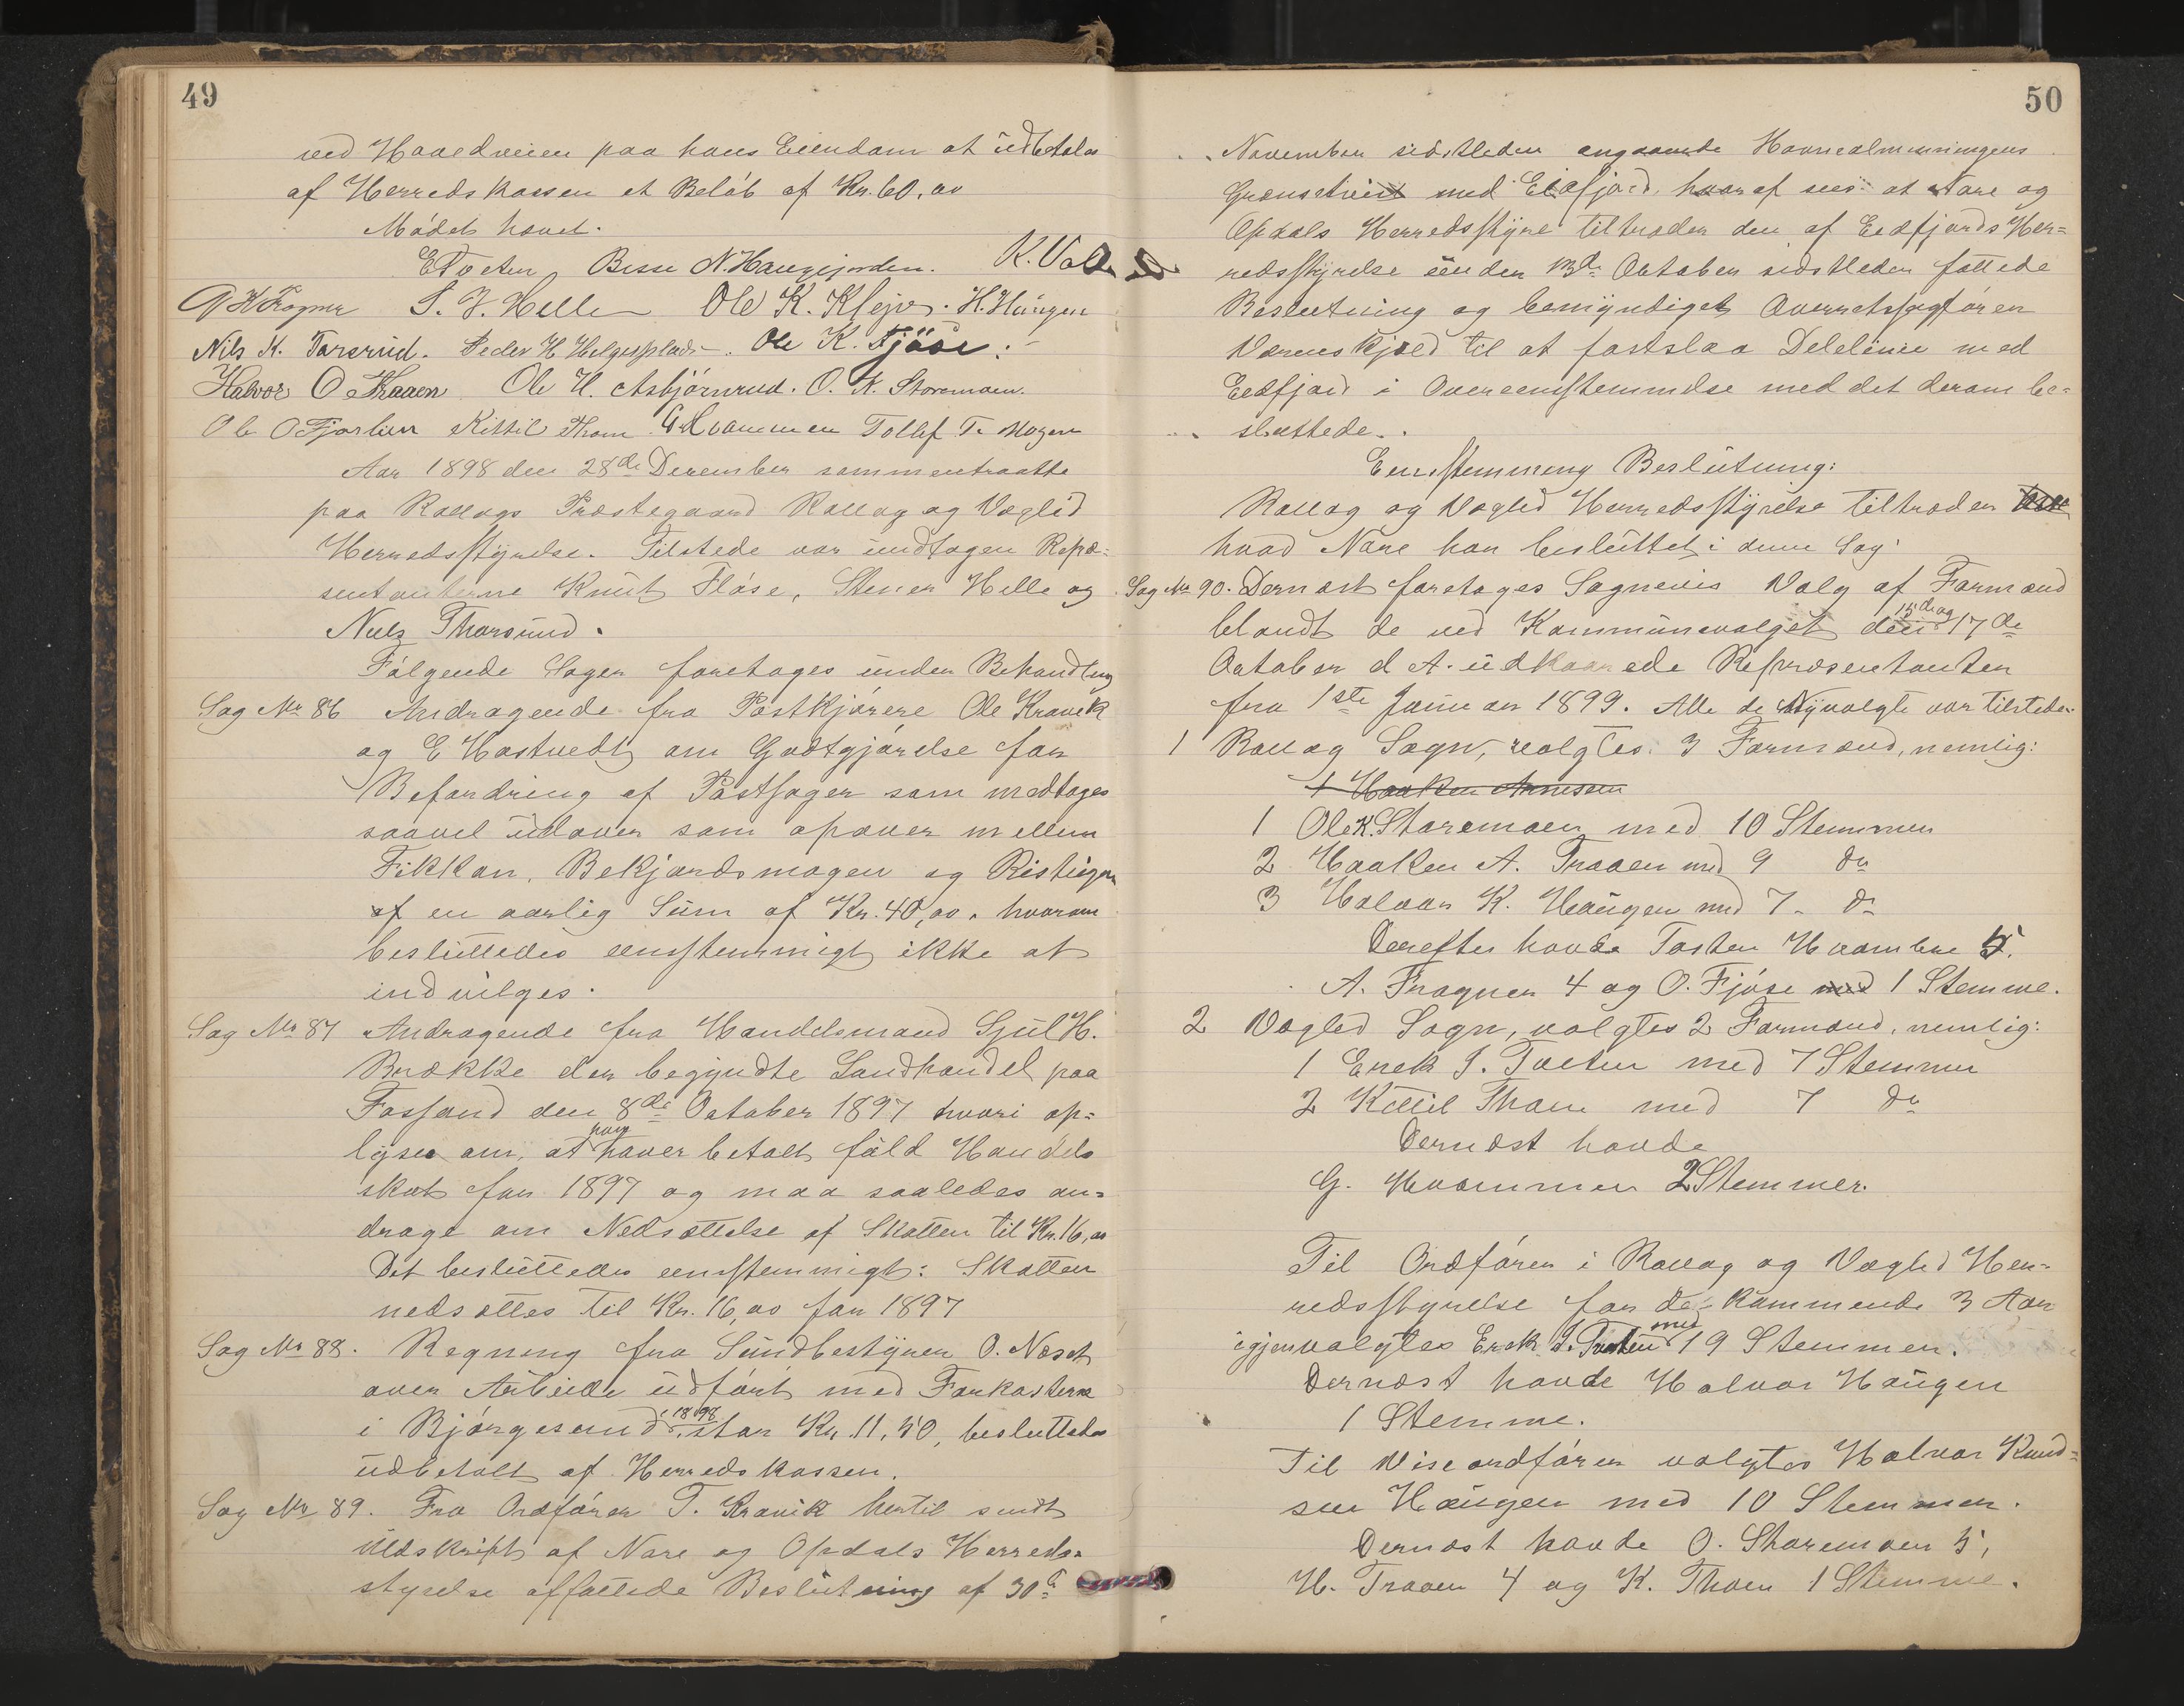 49
ved Hovedveien paa hans Eiendom at udbetales
af Herredskassen et Beløb af Kr. 60,00
Mødet hævet.
E Toeten Besse N. Haugejorden. K. Valle
A K Frogner S. J. Helle Ole K. Kleje. H. Haugen
Nils K. Tarsrud. Peder H Helgesplads. Ole K. Fjöse.
Halvor O Traaen Ole H. Asbjørnrud. O. K. Storemoen.
Ole O Fjørlien Kittil Thoen G. Hvammen Tollef T. Mogen
Aar 1898 den 28de December sammentraadte
paa Rollags Præstegaard Rollag og Vegled
Herredsstyrelse. Tilstede var undtagen Repræ-
sentanterne Knut Fløse, Stener Helle og
Niels Tharsrud.
Følgende Sager foretoges under Behandling
Sag No 86 Andragende fra Postkjørere Ole Kravik
og E Hastvedt om Godtgjørelse for
Befordring af Postsager som medtages
saavel udover som opover mellem
Fikkan, Bekjordsmogen og Ristugen
af en aarlig Sum af Kr. 40,00. hvorom
besluttedes eenstemmigt ikke at
indvilges.
Sag No 87 Andragende fra Handelsmand Gjul H.
Brække der begyndte Landhandel paa
Fossand den 8de October 1897 hvori op-
lyses om, at han haver betalt fuld Handels
skat for 1897 og maa saaledes an-
drage om Nedsættelse af Skatten til Kr. 16,00
Det besluttedes eenstemmigt: Skatten
nedsættes til Kr. 16,00 for 1897
Sag No 88. Regning fra Sundbestyrer O. Næset
over Arbeide udført med Forkasterne
i Bjørgesund i 1898, stor Kr. 11,50, besluttedes
udbetalt af Herredskassen.
Sag No 89. Fra Ordfører T. Kravik hertil sendt
Udskrift af Nore og Opdals Herreds-
styrelse affattede Beslutning af 30te
50
November sidstleden angaaende Havnealmenningens
Grænsetvist med Eidfjord, hvoraf sees at Nore og
Opdals Herredsstyre tiltræder den af Eidfjords Her-
redsstyrelse under 13de October sidstleden fattede
Beslutning og bemyndiget Overretssagfører
Værenskjold til at fastslaa Delelinie med
Eidfjord i Overeensstemmelse med det derom be-
sluttede.
Eenstemmeng Beslutning:
Rollag og Vegled Herredsstyrelse tiltræder
hvad Nore har besluttet i denne Sag.
Sag No 90. Dernæst foretoges Sognevis Valg af Formænd
blandt de ved Kommunevalget den 15de og 17de
October d A. udkaarede Repræsentanter
fra 1ste Januar 1899. Alle de Nyvalgte var tilstede.
1 Rollag Sogn, valgtes 3 Formænd, nemlig:
1 Haaken Arnesen
1 Ole K. Storemoen med 10 Stemmer
2 Haaken A. Traaen med 9 do
3 Halvor K. Haugen med 7 do
Derefter havde Tosten Hvambne 5.
A. Frogner 4 og O. Fjøse med 1 Stemme.
2 Vegled Sogn, valgtes 2 Formænd, nemlig:
1 Erek J. Toeten med 7 Stemmer
2 Kittil Thoen med 7 do
Dernæst havde
G. Hvammen 2 Stemmer.
Til Ordfører i Rollag og Vegled Her-
redsstyrelse for de kommende 3 Aar
igjenvalgtes Erek J. Toeten med 19 Stemmer.
Dernæst havde Halvor Haugen
1 Stemme.
Til Viseordfører valgtes Halvor Knud-
sen Haugen med 10 Stemmer.
Dernæst havde O. Storemoen 5,
H. Traaen 4 og K. Thoen 1 Stemme.